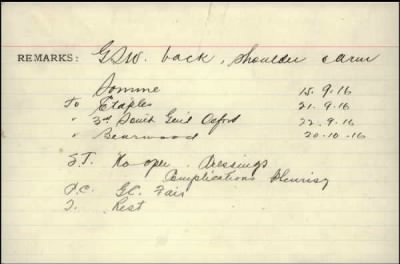 REMARKS: GSW. back, shoulder & arm
Somme 15.9.16
To Etaples 21.9.16
" 3rd South Genl Oxford 22.9.16
" Bearwood 20-10-16
S.T. No oper. Dressings
Complications Pleurisy
P.C. G.C. Fair
T. Rest